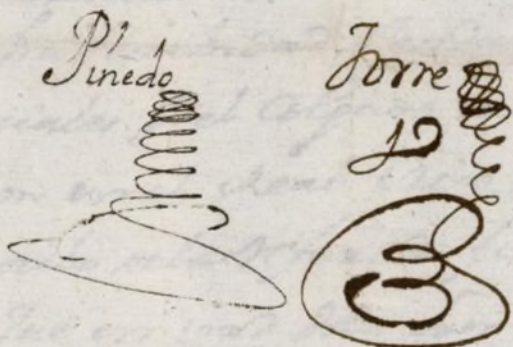 Pinedo
Torre